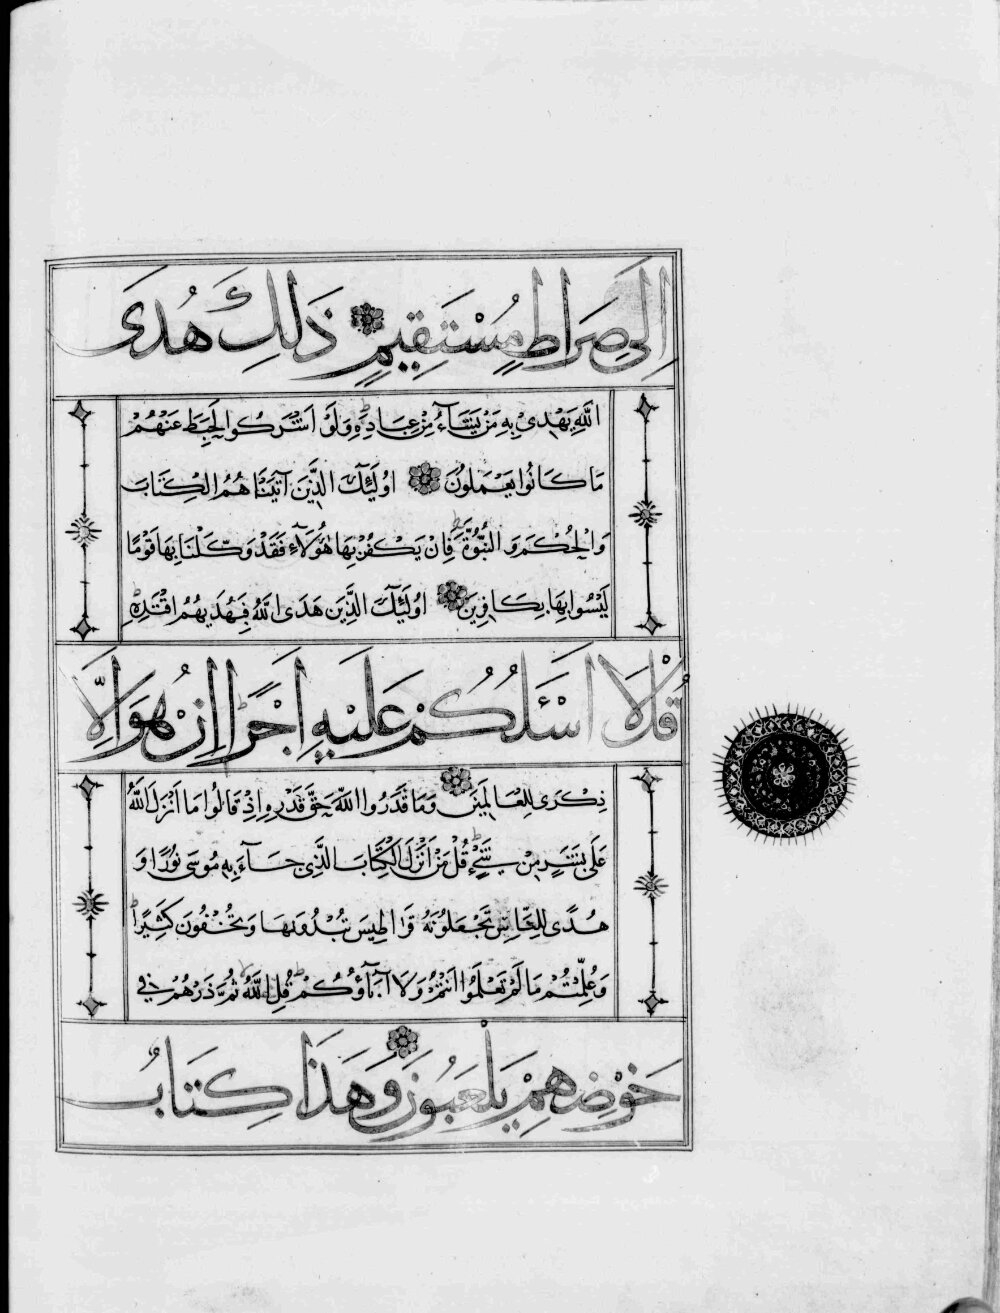 اِلىٰ صِرَاطٍ مُسْتَقِيمٍ ذَلِكَ هُدَى
اللَّهِ يَهْدِى بِهِ مَنْ يَشَآءُ مِنْ عِبَادِهِ وَلَوْ اَشْرَكُوا لَحَبِطَ عَنْهُمْ
مَا كَانُوا يَعْمَلُونَ اُولَئِكَ الَّذِينَ آتَيْنَا هُمُ الْكِتَابَ
وَالْحُكْمَ وَ النُّبُوَّةَ فَاِنْ يَكْفُرْ بِهَا هٰؤُلَآءِ فَقَدْ وَكَّلْنَا بِهَا قَوْمًا
لَيْسُوا بِهَا بِكَافِرِينَ اُولَئِكَ الَّذِينَ هَدَى اللَّهُ فَبِهُدَيهُمُ اقْتَدِهْ
قُلْ لَا اَسْئَلُكُمْ عَلَيْهِ اَجْرًا اِنْ هُوَ اِلَّا
ذِكْرَى لِلْعَالَمِينَ وَمَا قَدَرُوا اللَّهَ حَقَّ قَدْرِهِ اِذْ قَالُوا مَا اَنْزَلَ اللَّهُ
عَلَى بَشَرٍ مِنْ شَىْءٍ قُلْ مَنْ اَنْزَلَ الْكِتَابَ الَّذِى جَآءَ بِهِ مُوسَى نُورًا وَ
هُدًى لِلنَّاسِ تَجْعَلُونَهُ قَرَاطِيسَ تُبْدُونَهَا وَتُخْفُونَ كَثِيرًا
وَعُلِّمْتُمْ مَا لَمْ تَعْلَمُوا اَنْتُمْ وَلَا آبَآؤُكُمْ قُلِ اللَّهُ ثُمَّ ذَرْهُمْ فِى
خَوْضِهِمْ يَلْعَبُونَ وَهَذَا كِتَابٌ